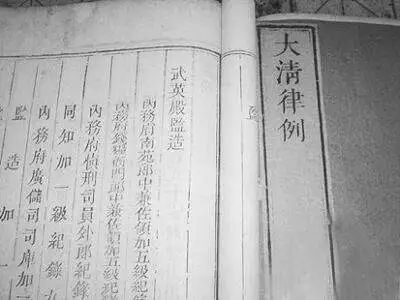 大清律例
武英殿監造
內務府南苑郎中兼佐領加五級紀錄
內務府錢糧衙門郎中兼佐領加五級紀
內務府慎刑司員外郎紀錄
同知加一級紀錄九
內務府廣儲司司庫加一
監造加一